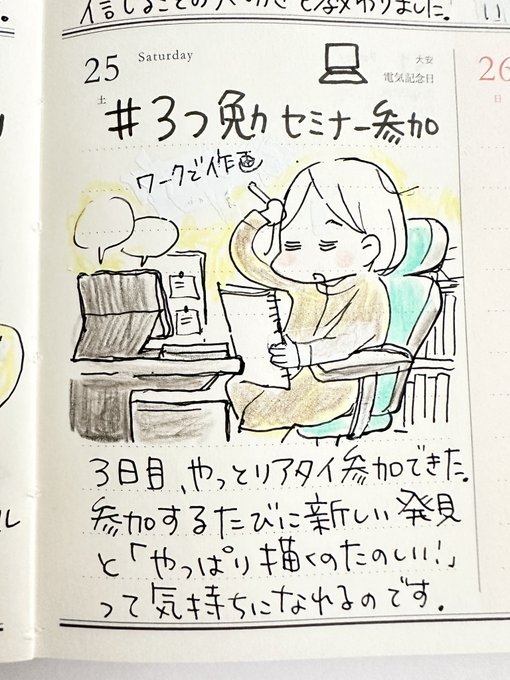 25
Saturday
土
大安
電気記念日
26
日
#3つ勉セミナー参加
ワークで作画
3日目、やっとリアタイ参加できた。
参加するたびに新しい発見
と「やっぱり描くのたのしい!」
って気持ちになれるのです.